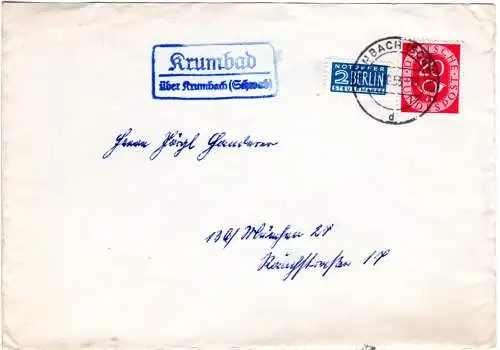 Krumbad
über Krumbach (Schwab)
NOTOPFER
2 BERLIN
STEUERMARKE
DEUTSCHE
BUNDESPOST
d
Herrn Jörgl Ganderer
13b/ München 27
Rauchstraße 17